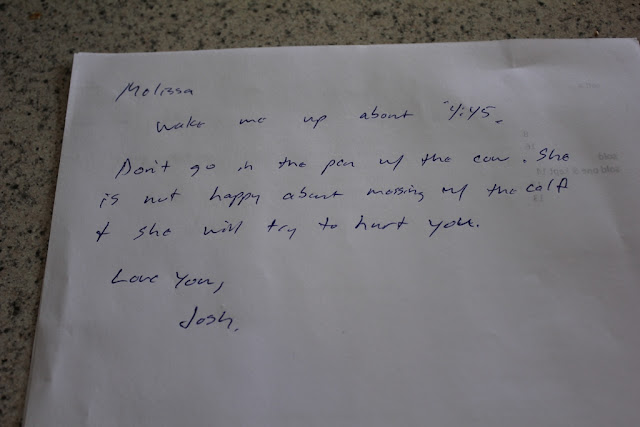 Melissa
wake me up about 4:45.
Don't go in the pen w/ the cow. She
is not happy about messing w/ the calf
& she will try to hurt you.
Love You,
Josh.